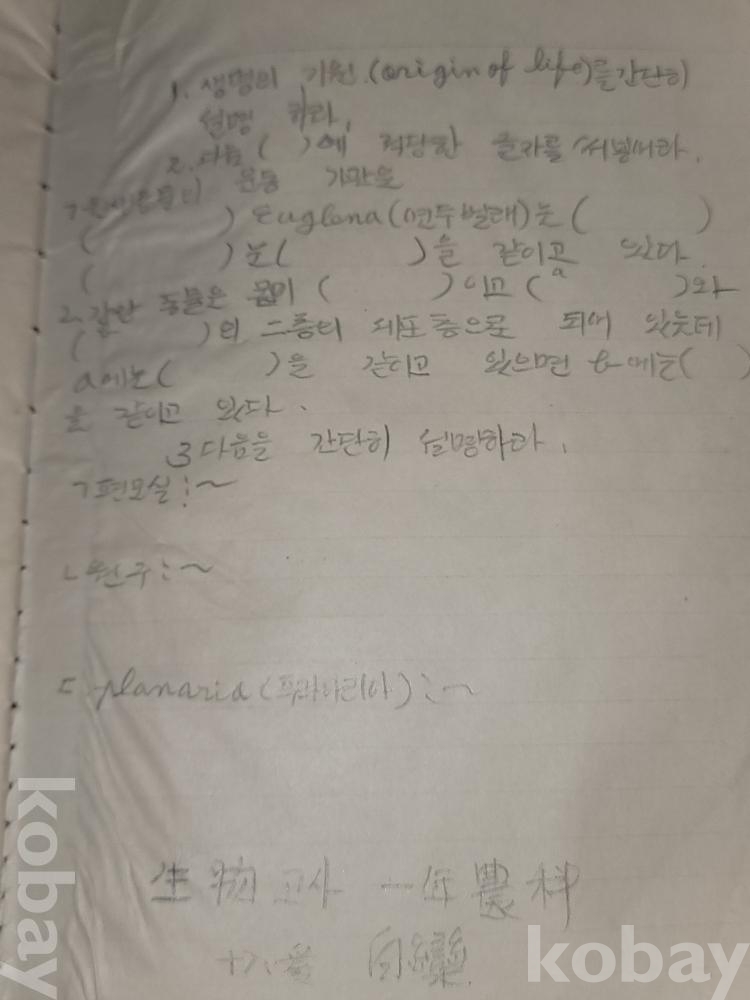 1. 생명의 기원.(origin of life)를 간단히
설명 하라.
2. 다음 (    )에 적당한 글자를 써넣어라.
운동 기관은
(    ) Euglena(연두벌레)는 (    )
(    )눈(    )을 같이고 있다.
2. 강장 동물은 몸이 (    )이고 (a    )와
(    )의 二층의 세포층으로 되어 있는데
a에는(    )을 같이고 있으면 b에는(    )
을 같이고 있다.
3 다음을 간단히 설명하라.
ㄱ 편모실:~
ㄴ 원구:~
ㄷ planaria(푸라나리아):~
生物 고사 一年 農科
kobay
kobay